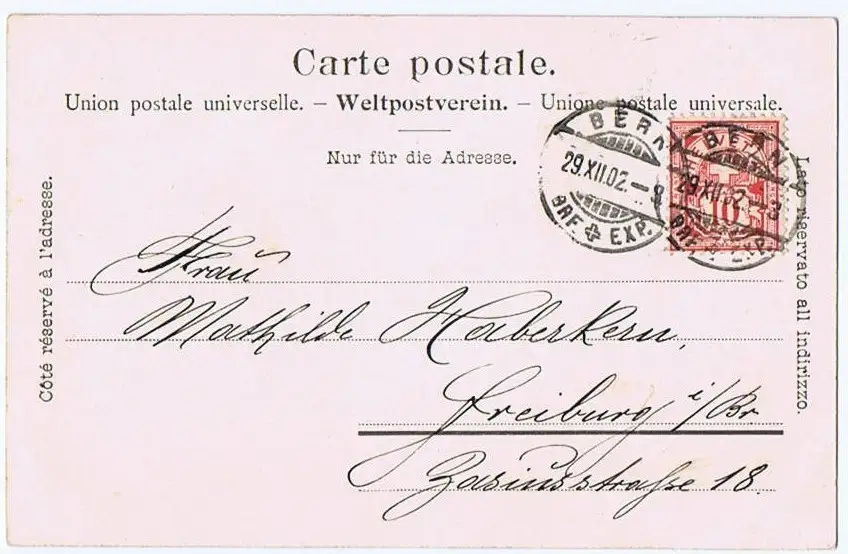 Carte postale.
Union postale universelle. – Weltpostverein. – Unione postale universale.
Nur für die Adresse.
Côté réservé à l'adresse.
Lato riservato all indirizzo.
BERN
29.XII.02.–8
BRF. EXP.
BERN
29.XII.02.–8
BRF. EXP.
10
Frau
Mathilde Haberkern,
Freiburg i/Br
Zasiusstraße 18.